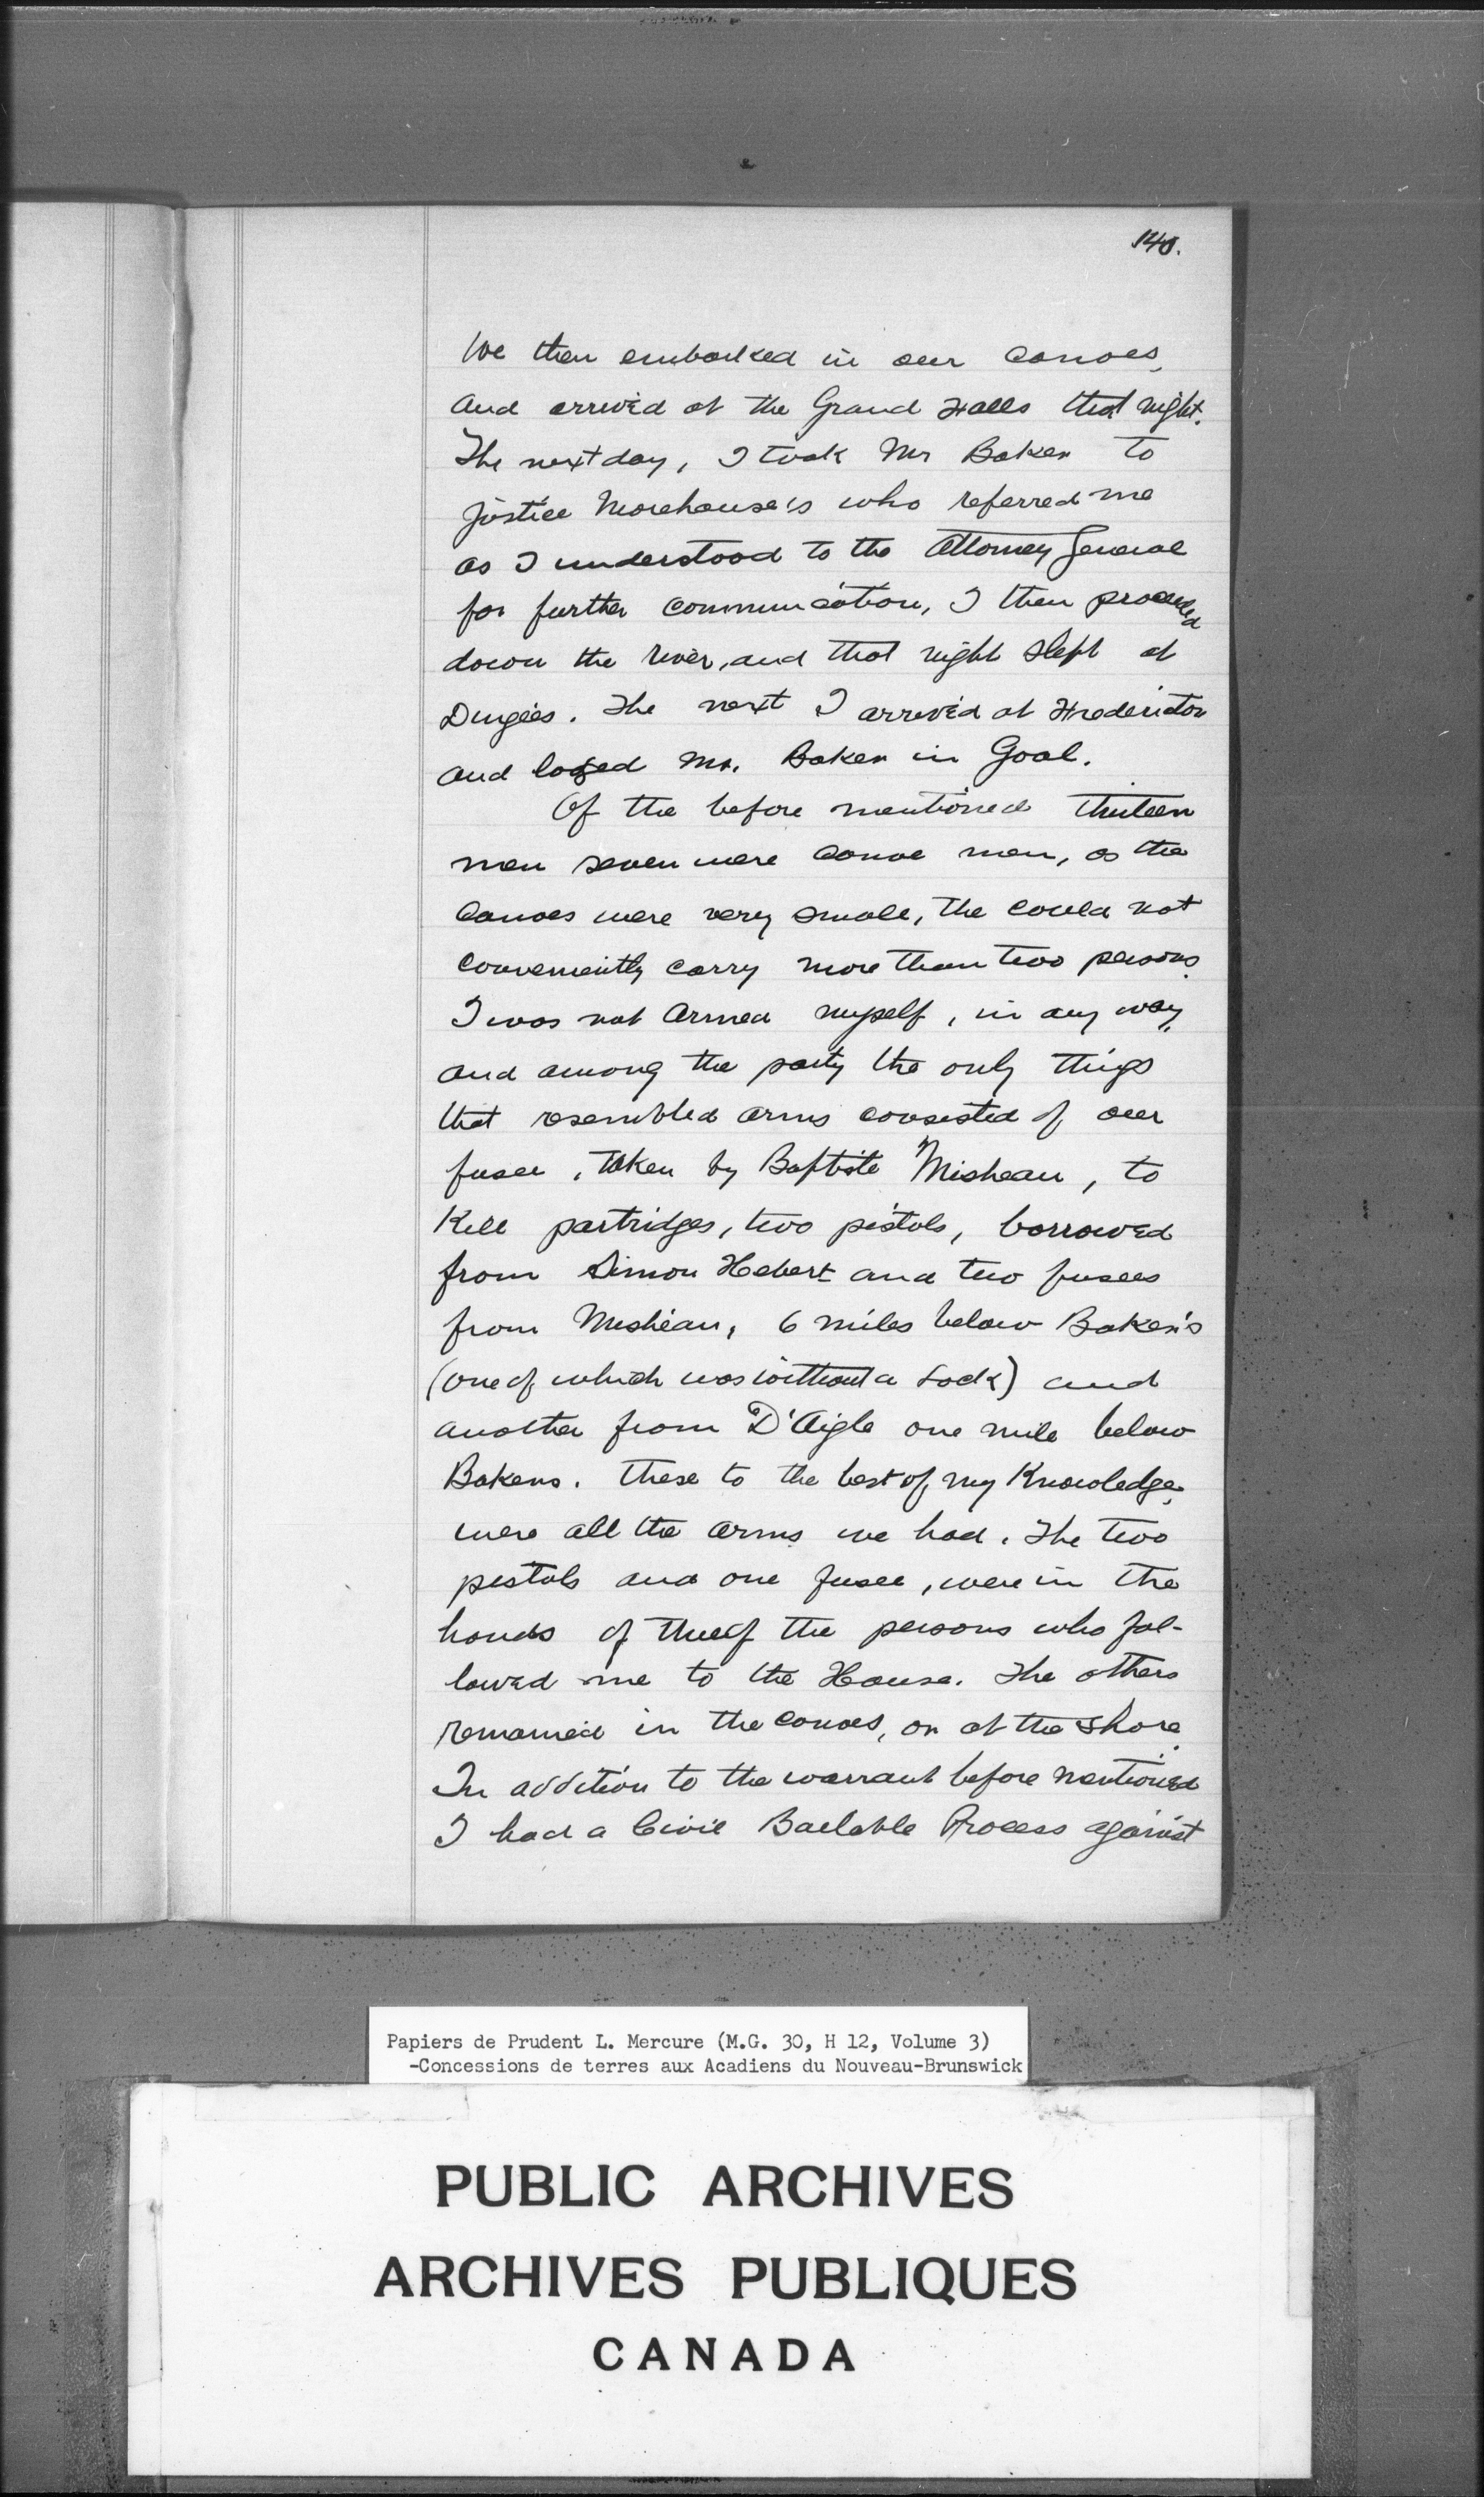 140.
We then embarked in our canoes,
and arrived at the Grand Falls that night.
The next day, I took Mr Baker to
Justice Morehouse's who referred me
as I understood to the Attorney General
for further communication, I then proceeded
down the river, and that night slept at
. The next I arrived at Fredericton
and loged Mr. Baker in Goal.
Of the before mentioned thirteen
men seven were canoe men, as the
canoes were very small, the could not
conveniently carry more than two persons.
I was not armed myself, in any way,
and among the party the only things
that resembled arms consisted of our
fusee, taken by Baptiste Misheau, to
Kill partridges, two pistols, borrowed
from Simon Hebert and two fusees
from Misheau, 6 miles below Baker's
(one of which was without a Lock) and
another from D'Aigle one mile below
Bakers. These to the best of my Knowledge,
were all the arms we had. The two
pistols and one fusee, were in the
hands of three of the persons who fol-
lowed me to the House. The others
remained in the canoes, or at the shore.
In addition to the warrant before mentioned
I had a Civil Bailable Process against
Papiers de Prudent L. Mercure (M.G. 30, H 12, Volume 3)
-Concessions de terres aux Acadiens du Nouveau-Brunswick
PUBLIC ARCHIVES
ARCHIVES PUBLIQUES
CANADA